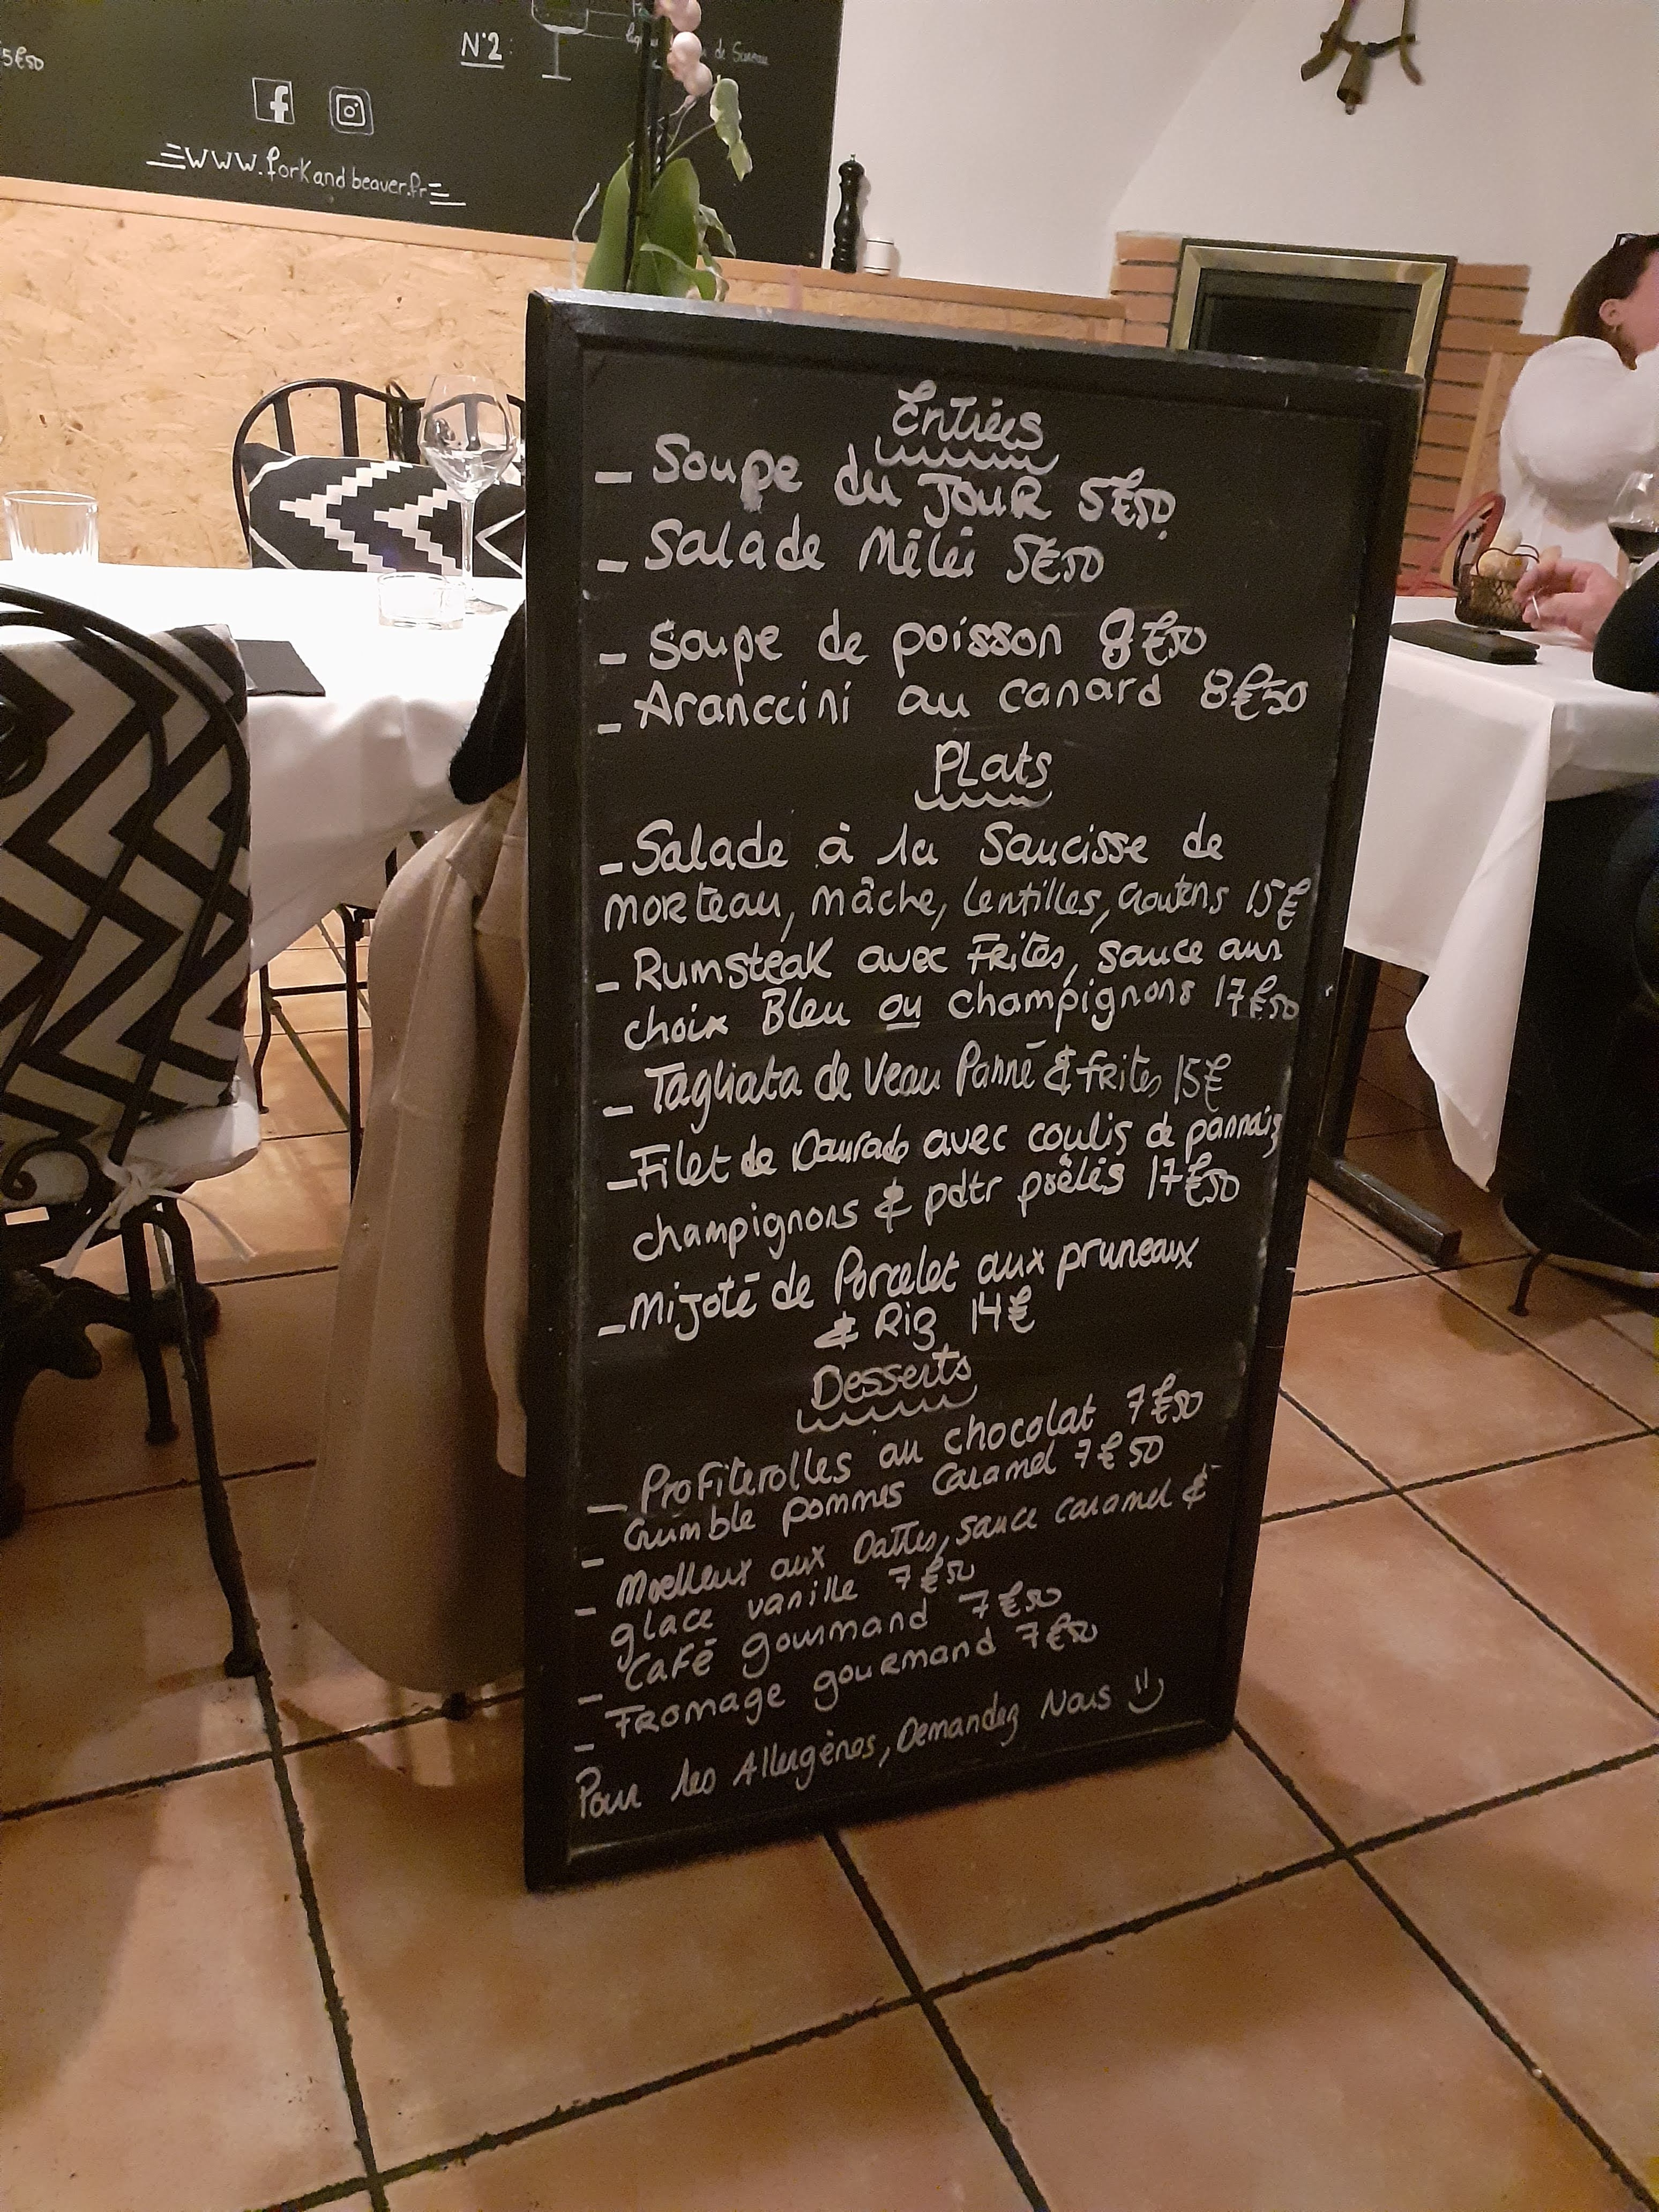 5€50
N°2:
de Sureau
www.forkandbeaver.fr
Entrées
- Soupe du JOUR 5€50
- Salade Mêlée 5€50
- Soupe de poisson 8€50
- Aranccini au canard 8€50
Plats
- Salade à la Saucisse de
morteau, mâche, lentilles, croutons 15€
- Rumsteak avec Frites, sauce aux
choix Bleu ou champignons 17€50
- Tagliata de Veau Panné & frites 15€
- Filet de Daurade avec coulis de pannais
champignons & pdtr poêlés 17€50
- Mijoté de Porcelet aux pruneaux
& Riz 14€
Desserts
- Profiterolles au chocolat 7€50
- Crumble pommes Caramel 7€50
- Moelleux aux Dattes, sauce caramel &
glace vanille 7€50
- Café gourmand 7€50
- Fromage gourmand 7€50
Pour les Allergènes, Demandez Nous